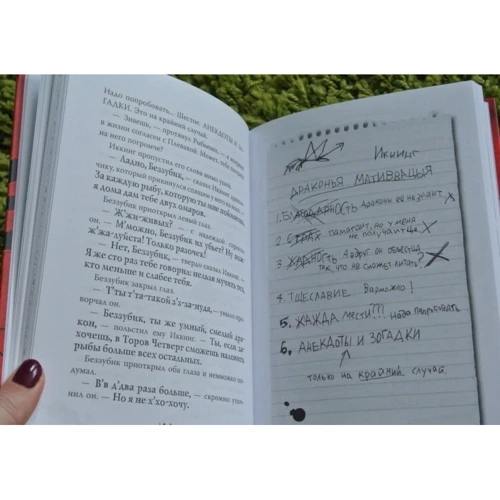 Надо попробовать... Шестое: АНЕКДОТЫ И ЗА-
ГАДКИ. Это на крайний случай.
— Знаешь, — проухал Рыбьеног, —
в жизни согласен с Плевакой. Может, тебе
на него погромче?
Иккинг пропустил его слова мимо ушей.
— Ладно, Беззубик, — сказал Иккинг
чику, который прикинулся
За каждую рыбу, которую ты мне поймаешь,
я дома дам тебе двух омаров.
Беззубик приоткрыл левый глаз.
— Ж'жи-живых? — с надеждой спросил
он. — М'можно, Беззубик их убьет? Ну по-
жа-жалуйста! Только разочек!
— Нет, Беззубик, — твердо сказал Иккинг. —
Я же сто раз тебе говорил: нельзя мучить тех,
кто меньше и слабее тебя.
Беззубик закрыл глаз.
— Т'ты т'та-такой з'з-за-нуда, — уныло про-
ворчал он.
— Беззубик, ты же умный, смелый дра-
кон, — польстил ему Иккинг. — Ты, если за-
хочешь, в Торов Четверг сможешь наловить
рыбы больше всех остальных.
Беззубик приоткрыл оба глаза и немножко по-
думал.
— В'в д'два раза больше, — скромно уточ-
нил он. — Но я не х'хо-хочу.
Иккинг
ДРАКОНЬЯ МАТИВВАЦЫЯ
1. БЛАГОДАРНОСТЬ драконы ее не знают
2. СТРАХ памагает, но у меня
не получаитца
3. ЖАДНОСТЬ А вдруг он обьестца
так, что не сможет литать?
4. ТЩЕСЛАВИЕ Вазможно!
5. ЖАЖДА МЕСТИ??! Надо папробывать
6. АНЕКДОТЫ И ЗОГАДКИ
только на крайний случай